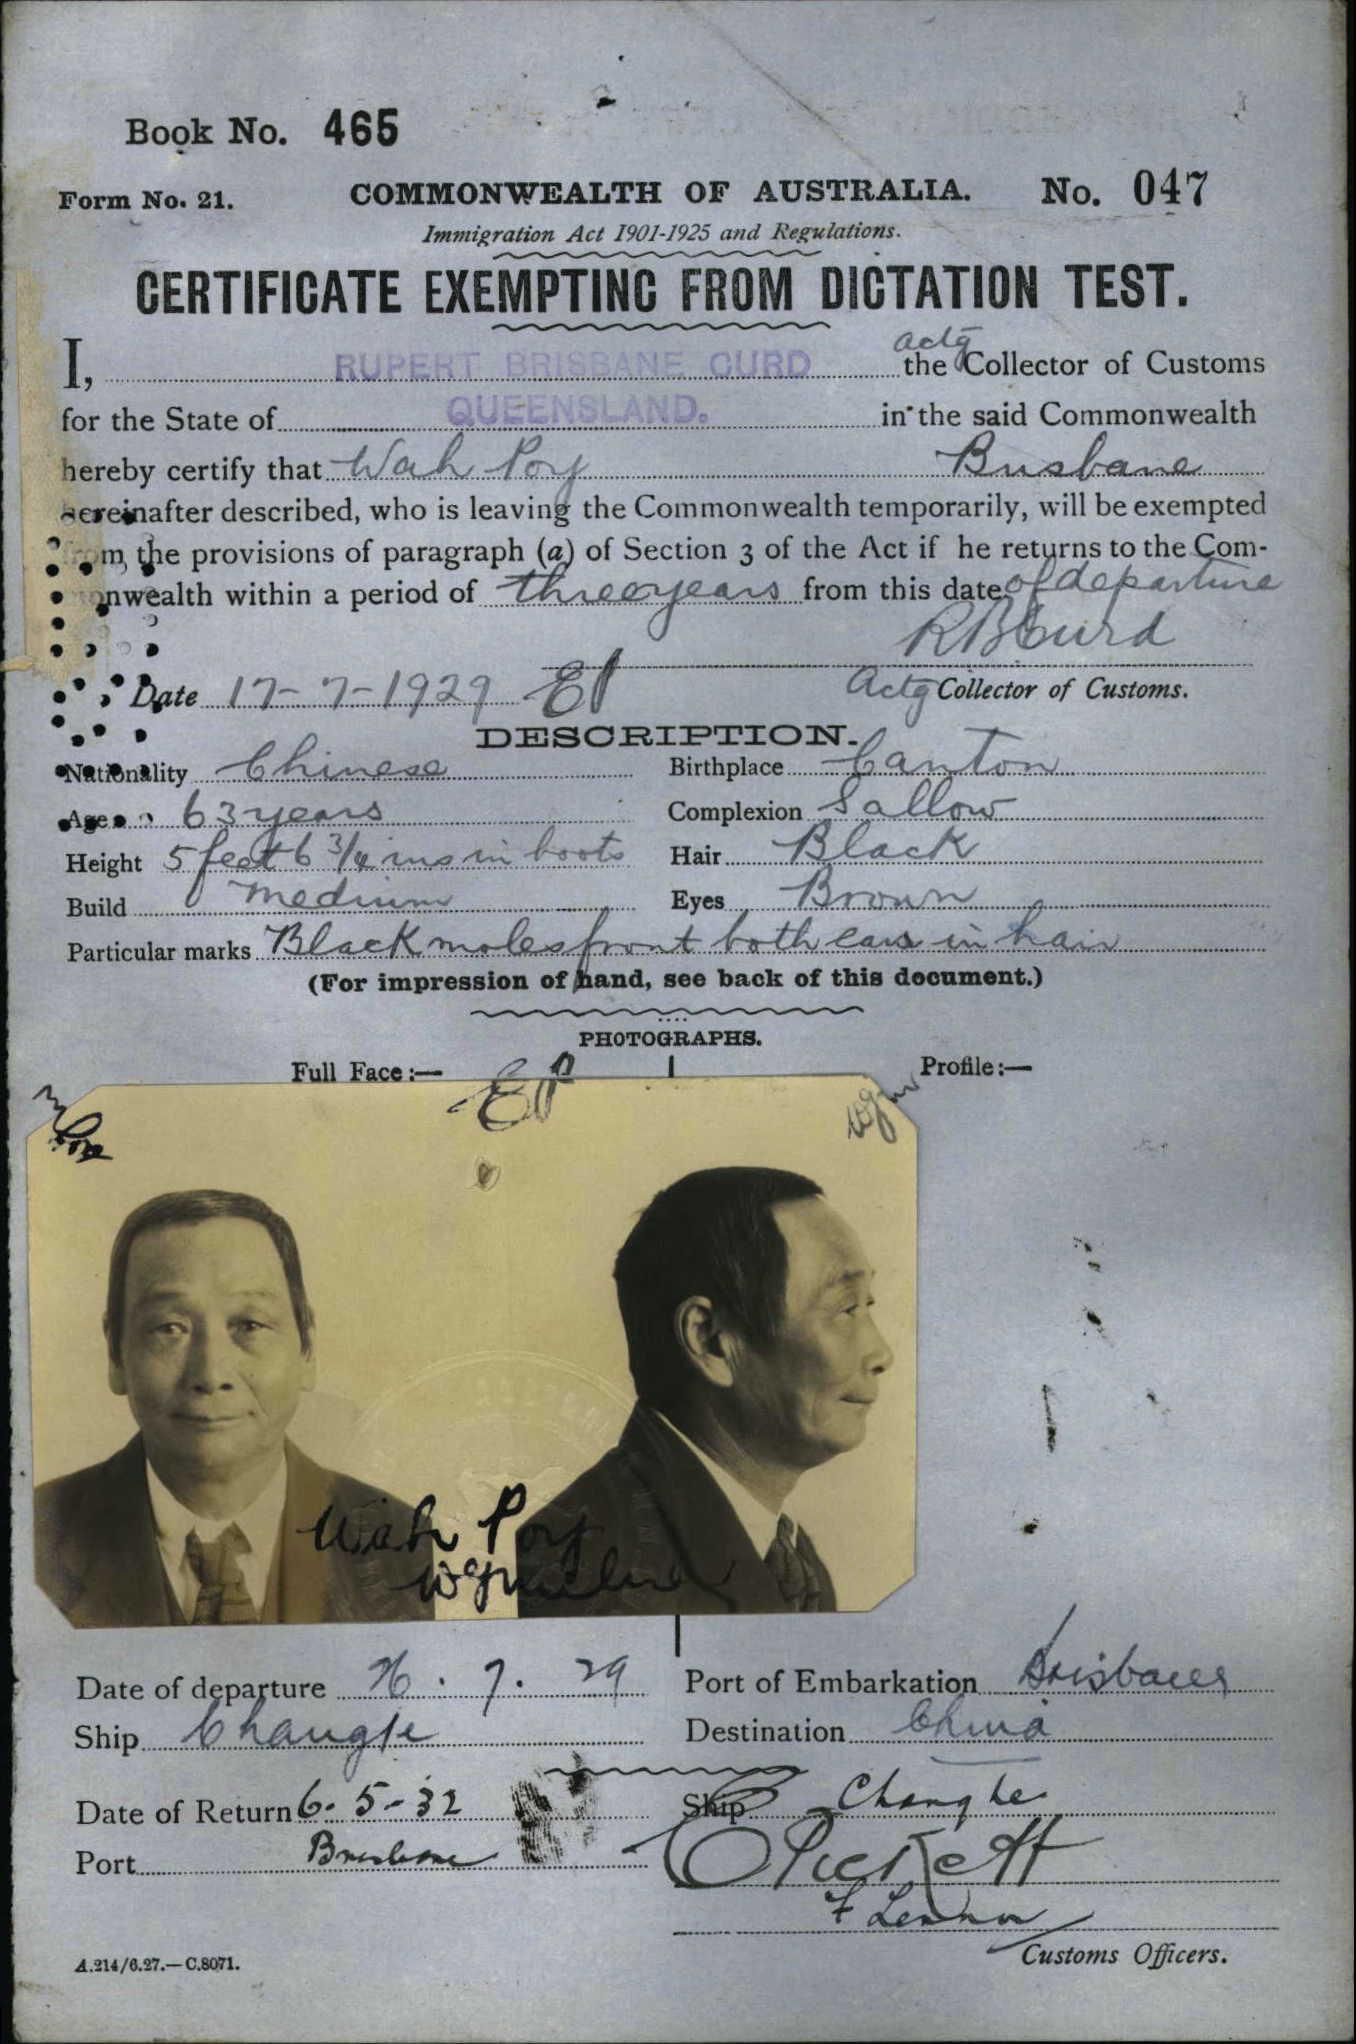 Book No. 465
Form No. 21. COMMONWEALTH OF AUSTRALIA. No. 047
Immigration Act 1901-1925 and Regulations.
CERTIFICATE EXEMPTING FROM DICTATION TEST.
actg
I, RUPERT BRISBANE CURD the Collector of Customs
for the State of QUEENSLAND. in the said Commonwealth
hereby certify that Wah Poy Brisbane
hereinafter described, who is leaving the Commonwealth temporarily, will be exempted
from the provisions of paragraph (a) of Section 3 of the Act if he returns to the Com-
monwealth within a period of three years from this date of departure
R B Curd
Date 17-7-1929 EP Actg Collector of Customs.
DESCRIPTION.
Nationality Chinese Birthplace Canton
Age 63 years Complexion Sallow
Height 5 feet 6 3/4 ins in boots Hair Black
Build medium Eyes Brown
Particular marks Black moles front both ears in hair
(For impression of hand, see back of this document.)
PHOTOGRAPHS.
Full Face:— Profile:—
EP
Wah Poy
Date of departure 26. 7. 29 Port of Embarkation Brisbane
Ship Changte Destination China
Date of Return 6-5-32 Ship Changte
Port Brisbane
F Lennon
Customs Officers.
A.214/6.27.—C.8071.